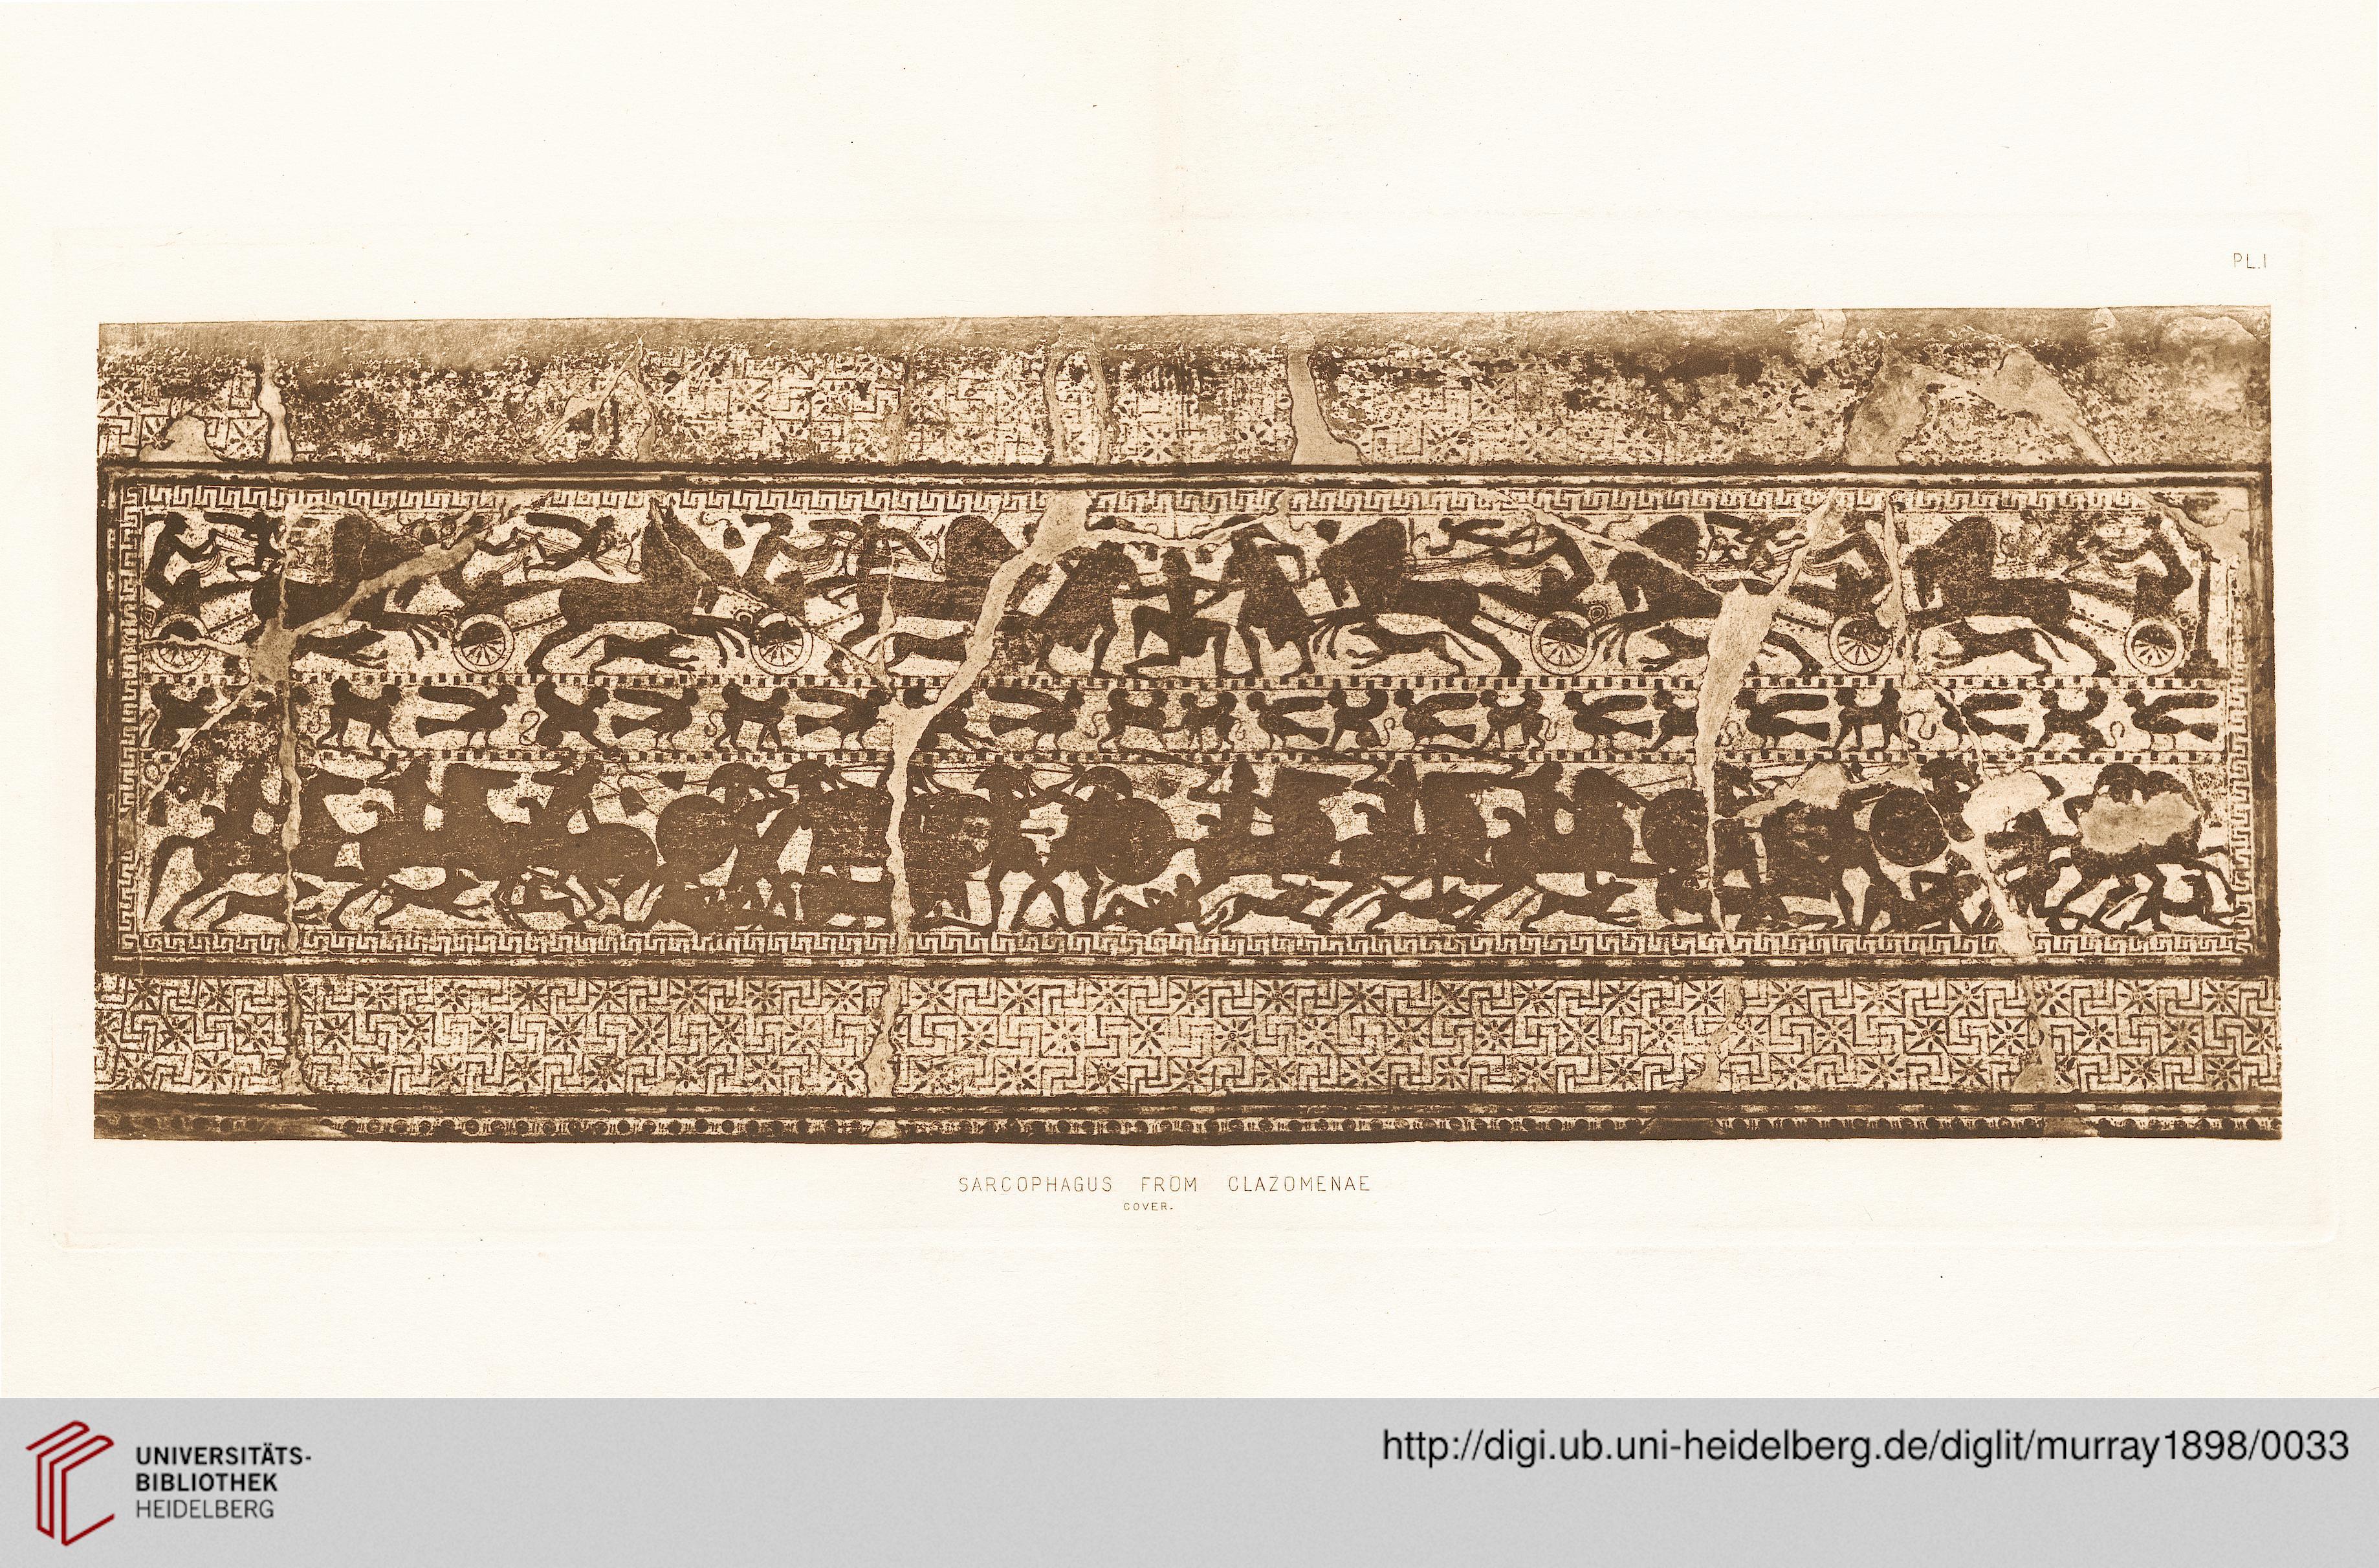 PL.I
SARCOPHAGUS FROM CLAZOMENAE
COVER.
UNIVERSITÄTS-
BIBLIOTHEK
HEIDELBERG
http://digi.ub.uni-heidelberg.de/diglit/murray1898/0033